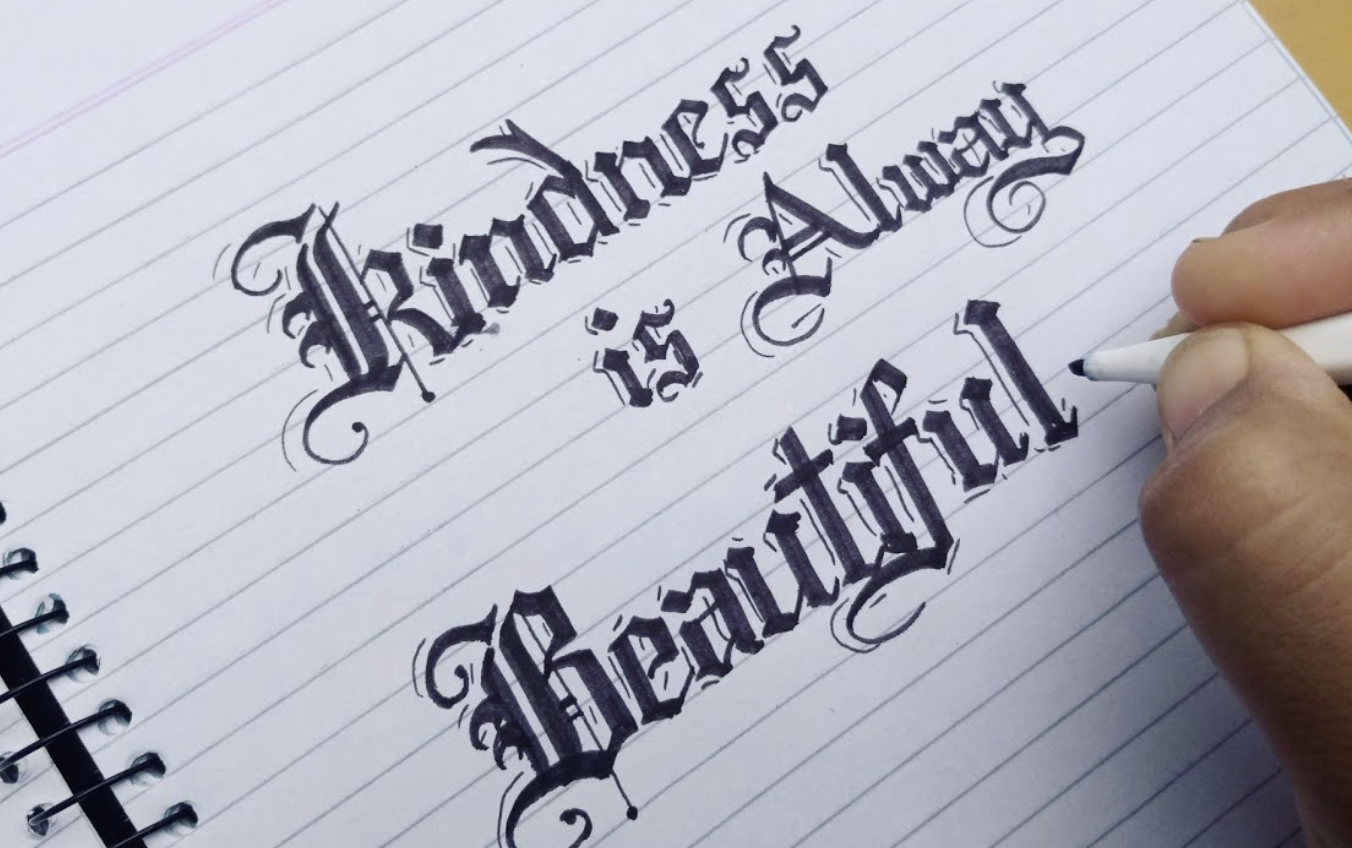 Kindness
is Alway
Beautiful